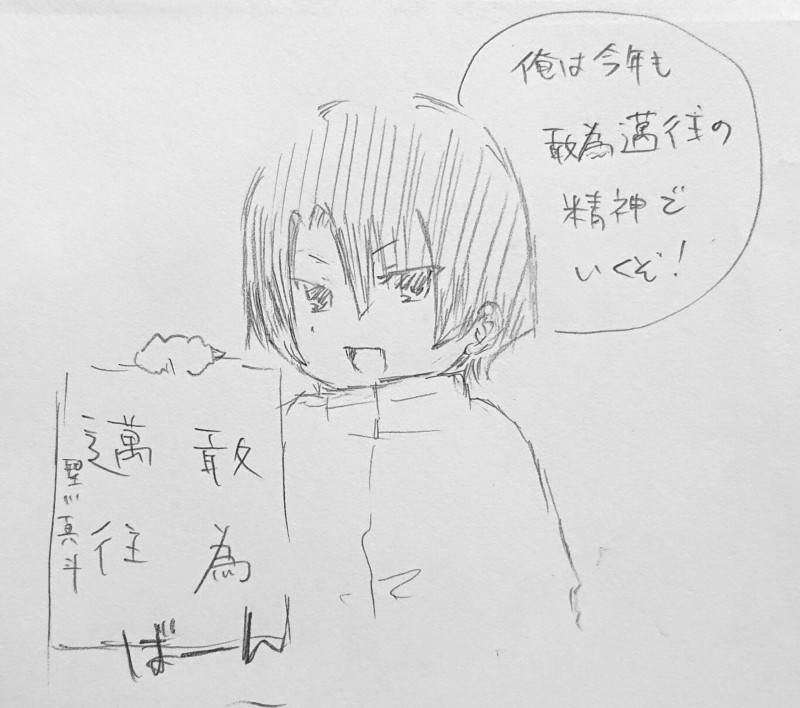 俺は今年も
敢為邁往の
精神で
いくぞ!
敢為
邁往
聖川真斗
ばーん